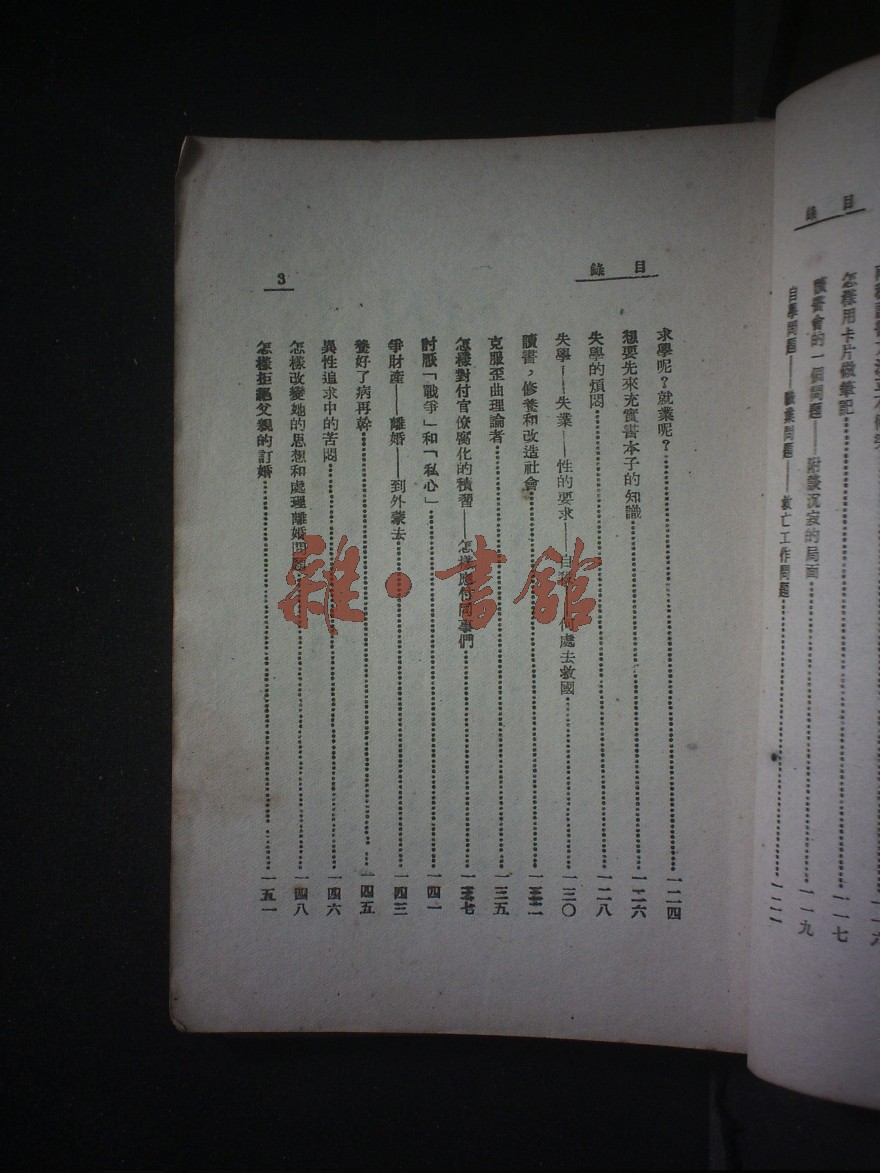 目錄
怎樣用卡片做筆記……一一七
讀書會的一個問題——附談沉寂的局面……一一九
自學問題——職業問題——救亡工作問題……一二一
目錄
3
求學呢？就業呢？……一二四
想要先來充實書本子的知識……一二六
失學的煩悶……一二八
失學——失業——性的要求——自 何處去救國……一三〇
讀書，修養和改造社會……一三二
克服歪曲理論者……一三五
怎樣對付官僚腐化的積習——怎樣應付同事們……一三七
討厭「戰爭」和「私心」……一四一
爭財產——離婚——到外蒙去……一四三
養好了病再幹……一四五
異性追求中的苦悶……一四六
怎樣改變她的思想和處理離婚問題……一四八
怎樣拒絕父親的訂婚……一五一
雜·書館